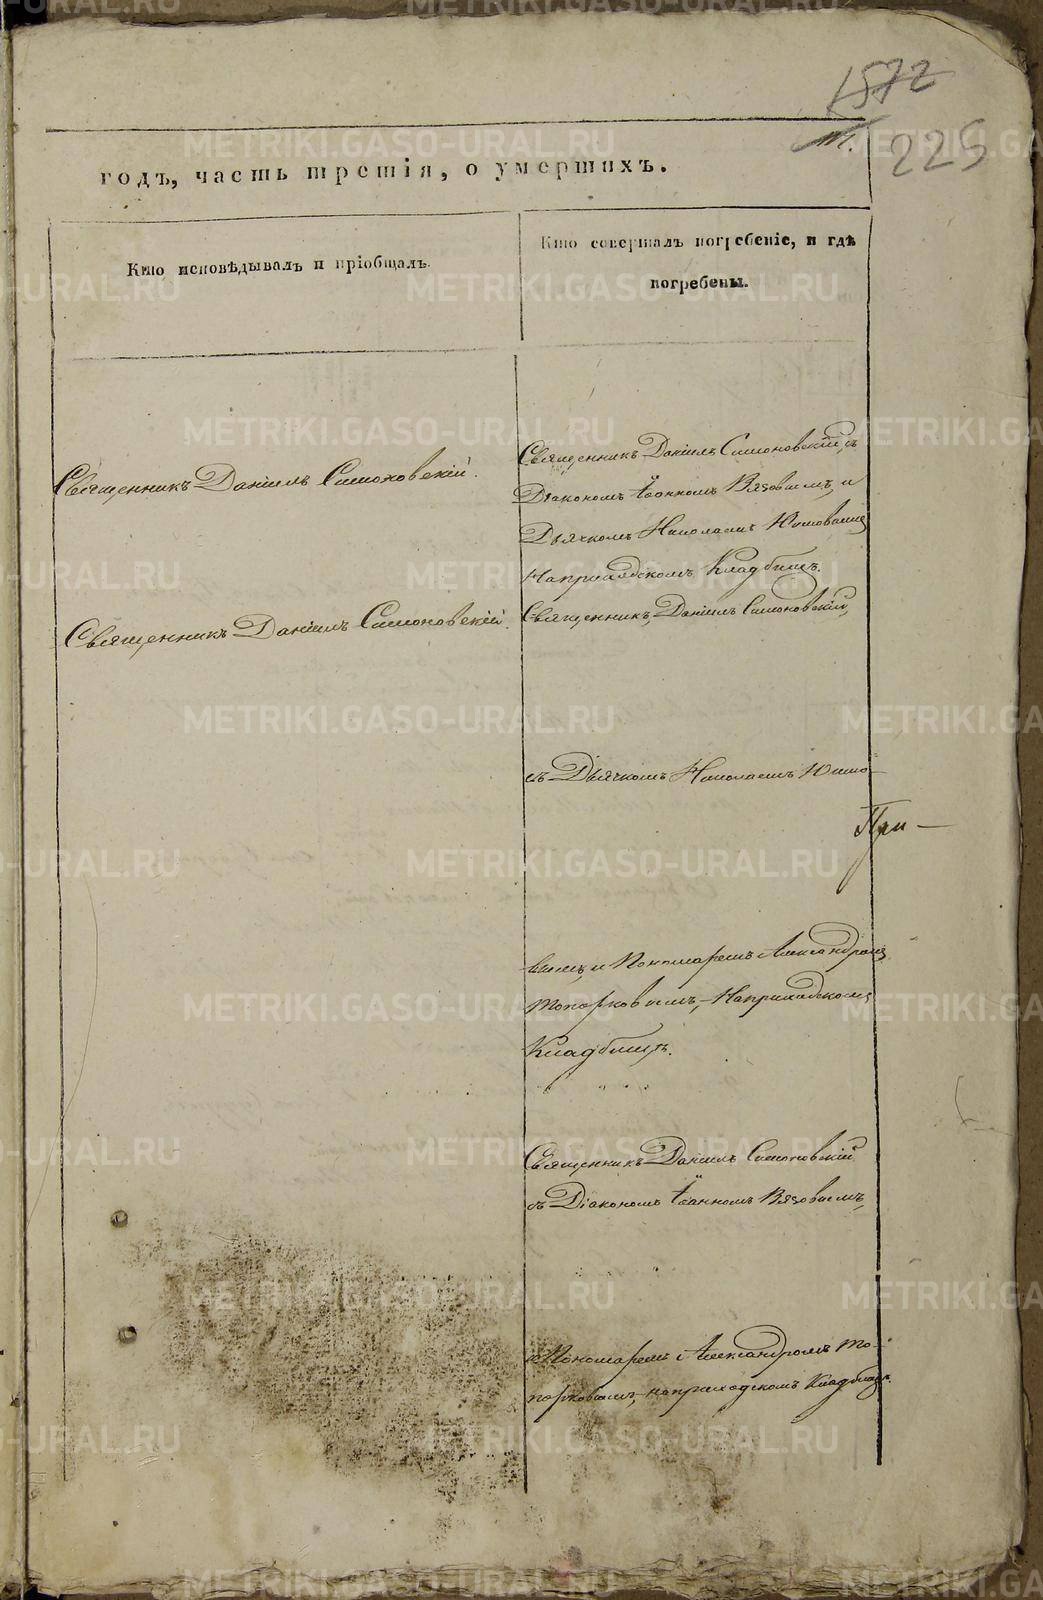 1572
225
годъ, часть третія, о умершихъ.
Кто исповѣдывалъ и пріобщалъ.
Кто совершалъ погребеніе, и гдѣ
погребены.
Священникъ Даніилъ Симоновскій.
Священникъ Даніилъ Симоновскій, съ
Діакономъ Іоанномъ Вязовымъ, и
Дьячкомъ Николаемъ
На приходскомъ Кладбищѣ.
Священникъ Даніилъ Симоновскій.
Священникъ, Даніилъ Симоновскій,
съ Дьячкомъ Николаемъ
При—
вымъ, и Пономаремъ Александромъ
Топорковымъ, На приходскомъ
Кладбищѣ.
Священникъ Даніилъ Симоновскій
съ Діакономъ Іоанномъ Вязовымъ,
и Пономаремъ Александромъ То-
порковымъ, на приходскомъ Кладбищѣ.
METRIKI.GASO-URAL.RU